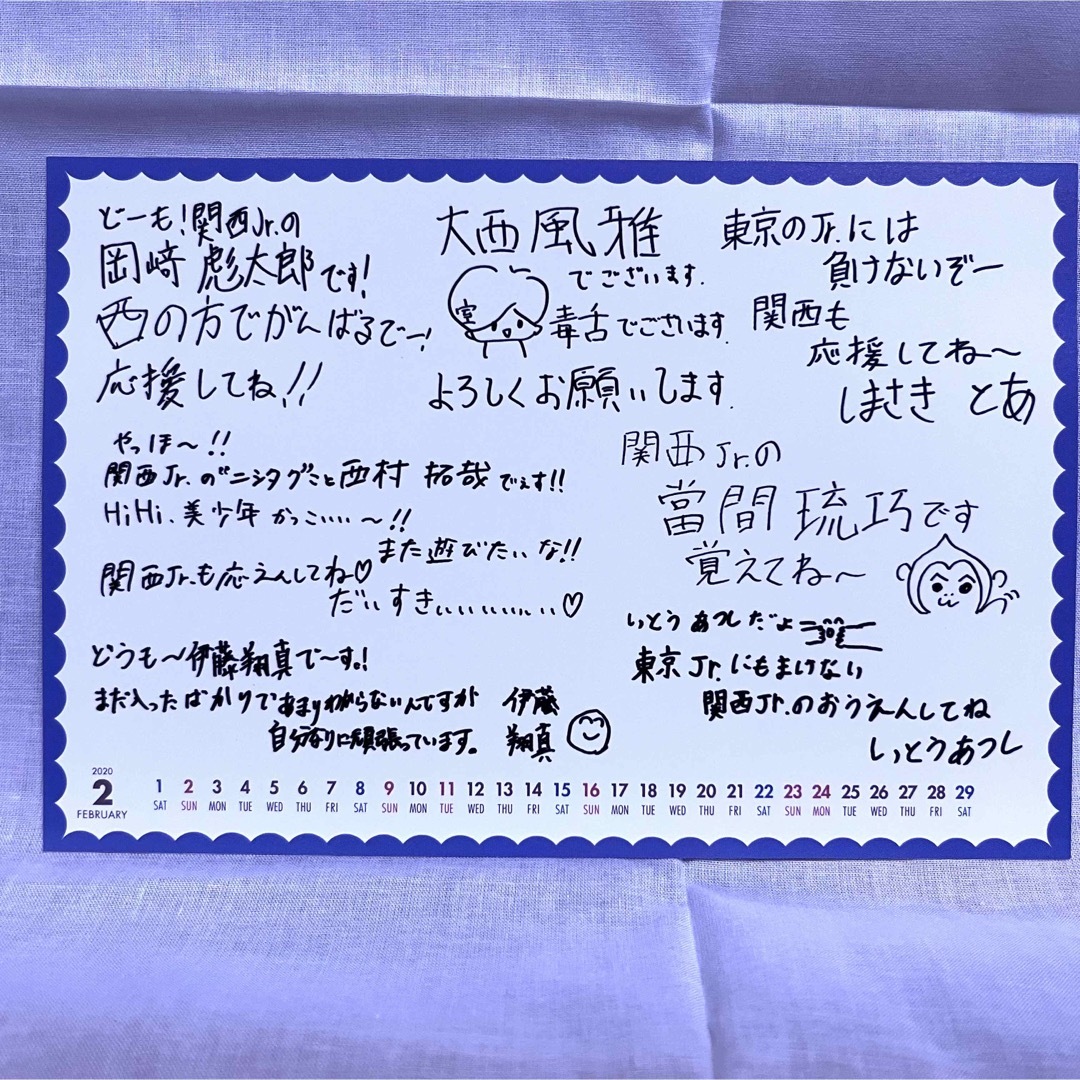 どーも!関西Jr.の
岡﨑 彪太郎です!
西の方でがんばるでー!
応援してね!!
大西風雅
でございます.
毒舌でございます.
よろしくお願いします.
東京のJr.には
負けないぞー
関西も
応援してね〜
しまさき とあ
やっほ〜!!
関西Jr.の"ニシタグ"こと西村 拓哉でぇす!!
HiHi、美少年 かっこいい〜!!
また遊びたいな!!
関西Jr.も応えんしてね♡
だいすきぃぃぃぃぃぃ♡
関西Jr.の
當間 琉巧です
覚えてね〜
どうも〜伊藤翔真で〜す。!
まだ入ったばかりであまりわからないんですが
自分なりに頑張っています。
伊藤
翔真
いとう あつしだよ
東京Jr.にもまけない
関西Jr.のおうえんしてね
いとうあつし
2020
2
FEBRUARY
1 2 3 4 5 6 7 8 9 10 11 12 13 14 15 16 17 18 19 20 21 22 23 24 25 26 27 28 29
SAT SUN MON TUE WED THU FRI SAT SUN MON TUE WED THU FRI SAT SUN MON TUE WED THU FRI SAT SUN MON TUE WED THU FRI SAT